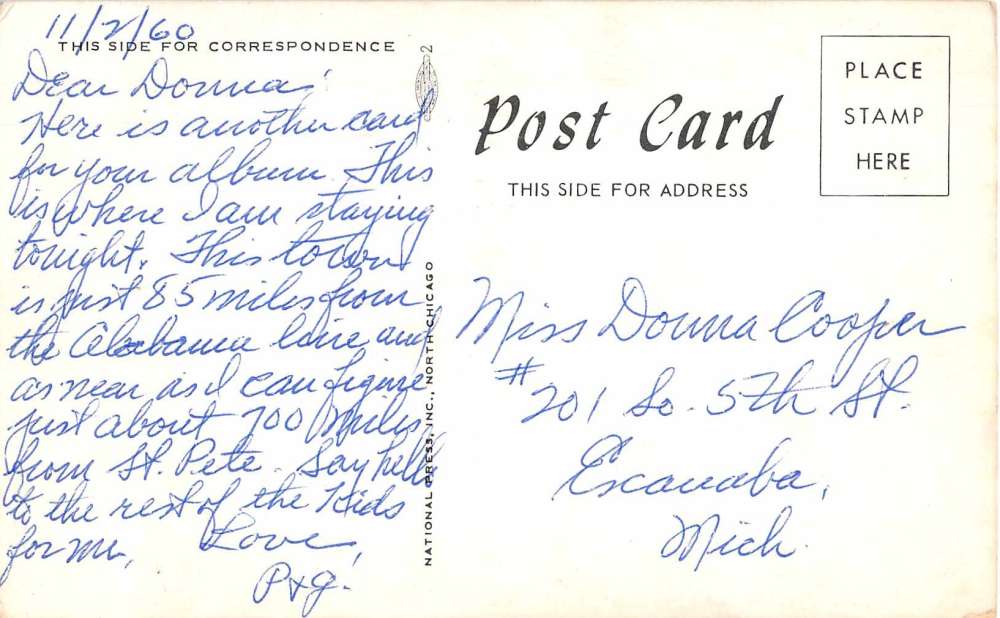 11/2/60
THIS SIDE FOR CORRESPONDENCE
Dear Donna;
Here is another card
for your album. This
is where I am staying
tonight. This town
is just 85 miles from
the Alabama line and
as near as I can figure
just about 700 miles
from St. Pete. Say hello
to the rest of the kids
for me,
Love,
P+g.
2
NATIONAL PRESS, INC., NORTH CHICAGO
Post Card
THIS SIDE FOR ADDRESS
PLACE
STAMP
HERE
Miss Donna Cooper
# 201 So. 5th St.
Escanaba,
Mich.